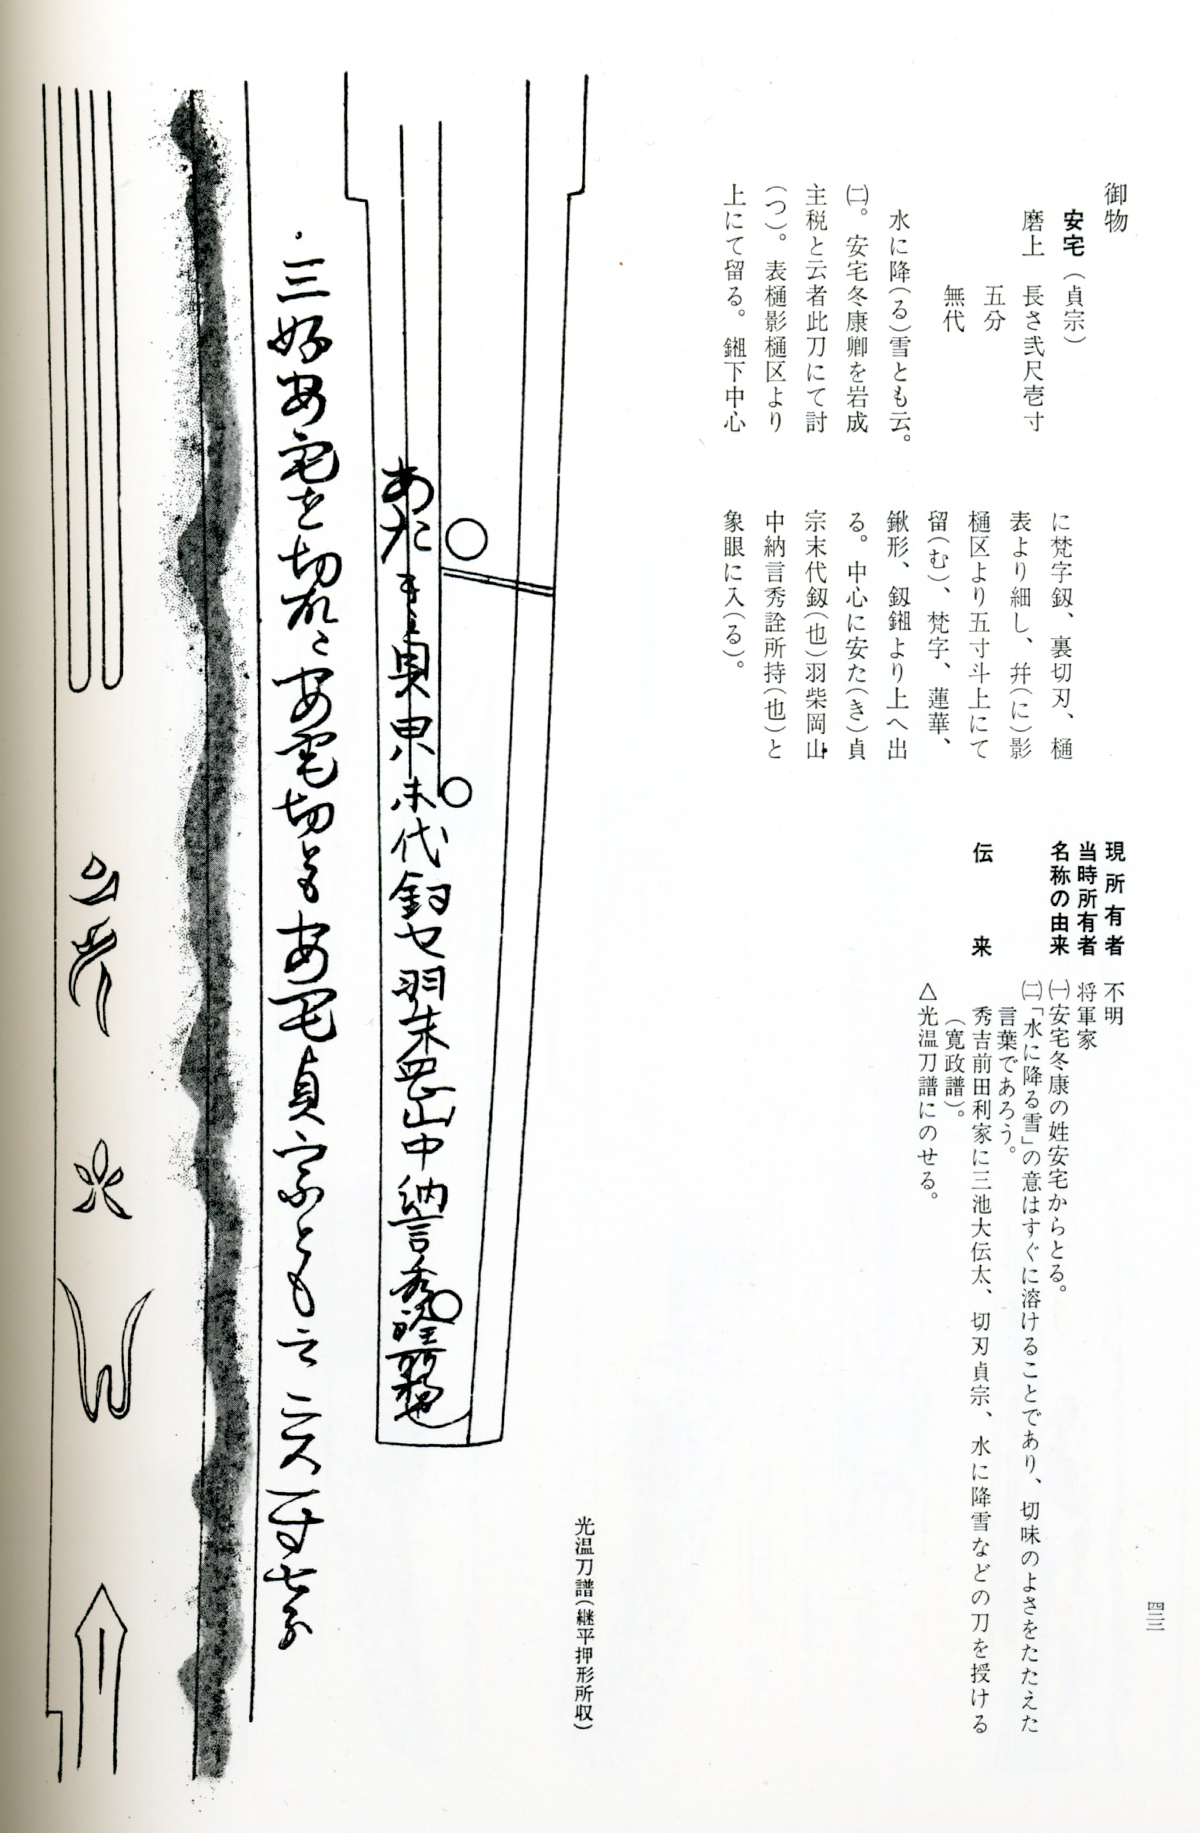 御物
安宅（貞宗）
磨上　長さ弐尺壱寸
五分
無代
水に降（る）雪とも云。
㈡。安宅冬康卿を岩成
主税と云者此刀にて討
（つ）。表樋影樋区より
上にて留る。鎺下中心
に梵字釼、裏切刃、樋
表より細し、幷（に）影
樋区より五寸斗上にて
留（む）、梵字、蓮華、
鍬形、釼鎺より上へ出
る。中心に安た（き）貞
宗末代釼（也）羽柴岡山
中納言秀詮所持（也）と
象眼に入（る）。
現所有者　不明
当時所有者　将軍家
名称の由来　㈠安宅冬康の姓安宅からとる。
㈡「水に降る雪」の意はすぐに溶けることであり、切味のよさをたたえた
言葉であろう。
伝来　秀吉前田利家に三池大伝太、切刃貞宗、水に降雪などの刀を授ける
（寛政譜）。
△光温刀譜にのせる。
四三
光温刀譜（継平押形所収）
あたき貞宗末代釼也羽柴岡山中納言秀詮所持也
三好安宅を切れ安宅切とも安宅貞宗とも云二尺一寸七分